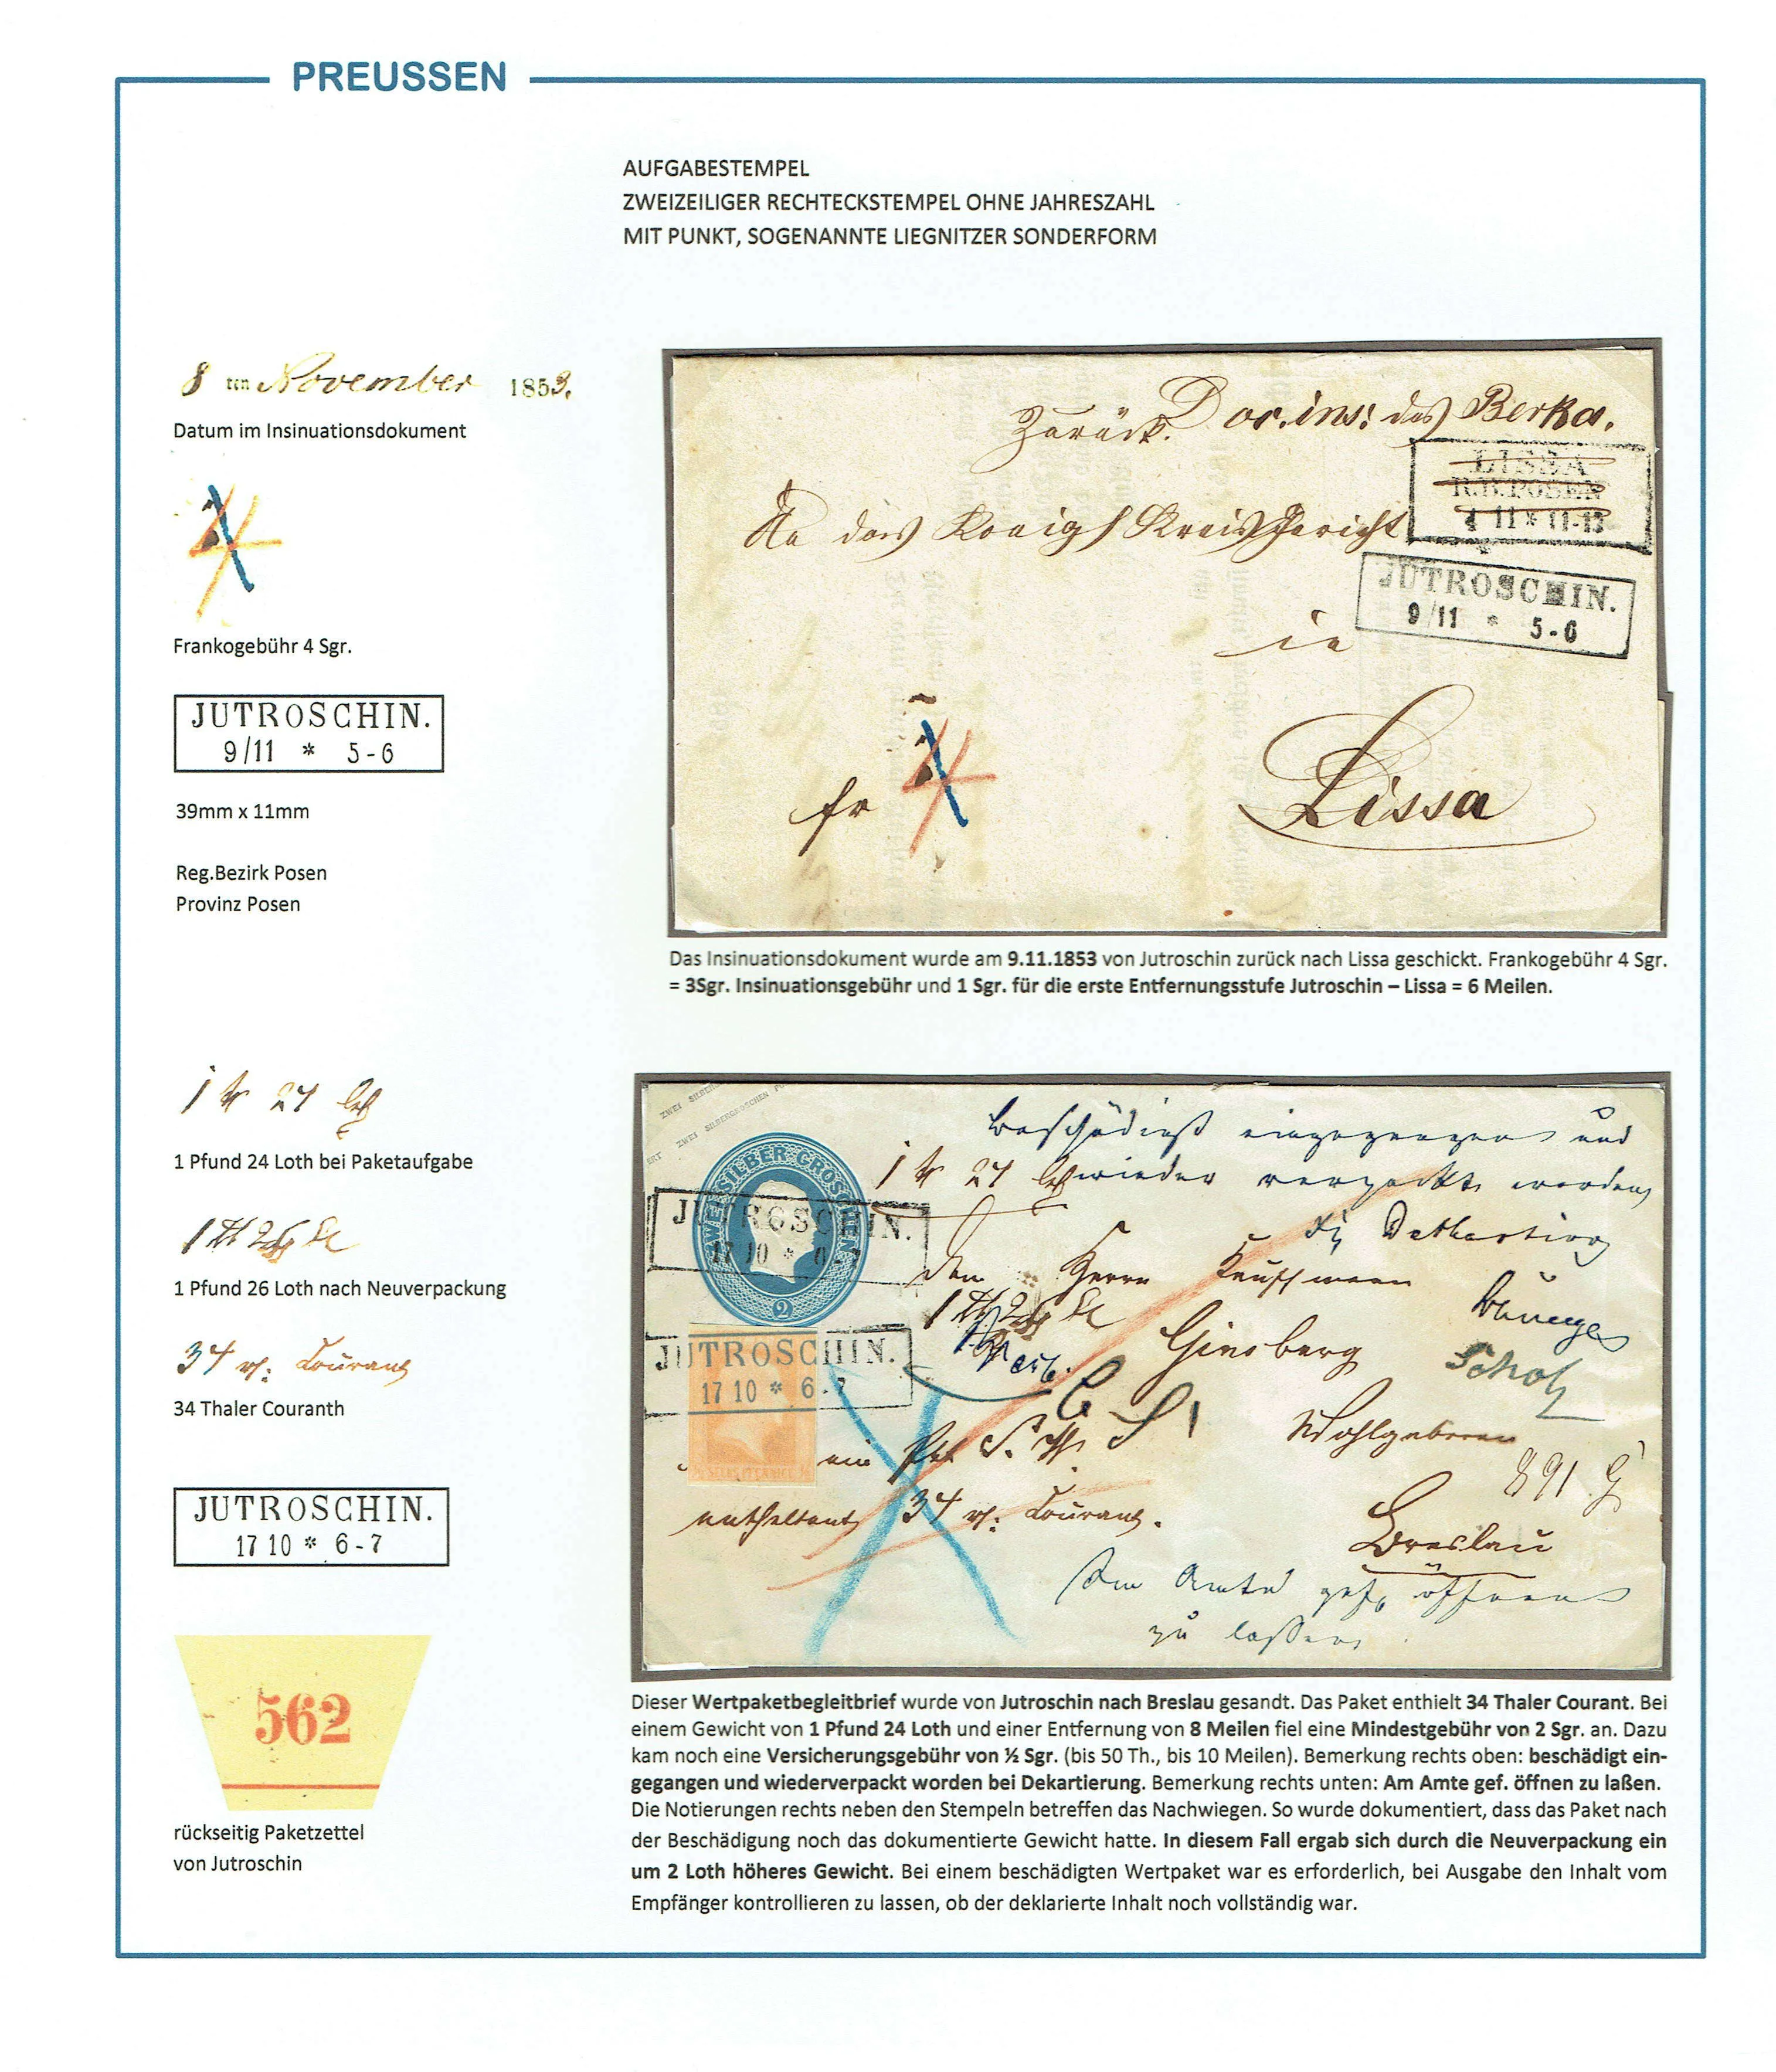 PREUSSEN
AUFGABESTEMPEL
ZWEIZEILIGER RECHTECKSTEMPEL OHNE JAHRESZAHL
MIT PUNKT, SOGENANNTE LIEGNITZER SONDERFORM
8 ten November 1853.
Datum im Insinuationsdokument
Frankogebühr 4 Sgr.
JUTROSCHIN.
9/11 * 5-6
39mm x 11mm
Reg.Bezirk Posen
Provinz Posen
Zurück. Doc. ins: des Berka.
LISSA
R.B. POSEN
11 * 11-12
An das Königl Kreis Gericht
JUTROSCHIN.
9/11 * 5-6
in
Lissa
fr 4
Das Insinuationsdokument wurde am 9.11.1853 von Jutroschin zurück nach Lissa geschickt. Frankogebühr 4 Sgr.
= 3Sgr. Insinuationsgebühr und 1 Sgr. für die erste Entfernungsstufe Jutroschin – Lissa = 6 Meilen.
1 24
1 Pfund 24 Loth bei Paketaufgabe
1 26
1 Pfund 26 Loth nach Neuverpackung
34 Courant
34 Thaler Couranth
JUTROSCHIN.
17 10 * 6-7
562
rückseitig Paketzettel
von Jutroschin
ZWEI SILBERGROSCHEN
ZWEI SILBERGROSCHEN
2
beschädigt eingegangen und
1 24 wieder verpackt worden
JUTROSCHIN.
17 10 * 6-7
Den Herrn Kaufmann
1 26
Ginsberg
Scholz
JUTROSCHIN.
17 10 * 6-7
SECHS PFENNIGE
Wohlgeboren
ein
891
enthaltend 34 Courant.
Breslau
Am Amte gef. öffnen
zu laßen
Dieser Wertpaketbegleitbrief wurde von Jutroschin nach Breslau gesandt. Das Paket enthielt 34 Thaler Courant. Bei
einem Gewicht von 1 Pfund 24 Loth und einer Entfernung von 8 Meilen fiel eine Mindestgebühr von 2 Sgr. an. Dazu
kam noch eine Versicherungsgebühr von ½ Sgr. (bis 50 Th., bis 10 Meilen). Bemerkung rechts oben: beschädigt ein-
gegangen und wiederverpackt worden bei Dekartierung. Bemerkung rechts unten: Am Amte gef. öffnen zu laßen.
Die Notierungen rechts neben den Stempeln betreffen das Nachwiegen. So wurde dokumentiert, dass das Paket nach
der Beschädigung noch das dokumentierte Gewicht hatte. In diesem Fall ergab sich durch die Neuverpackung ein
um 2 Loth höheres Gewicht. Bei einem beschädigten Wertpaket war es erforderlich, bei Ausgabe den Inhalt vom
Empfänger kontrollieren zu lassen, ob der deklarierte Inhalt noch vollständig war.